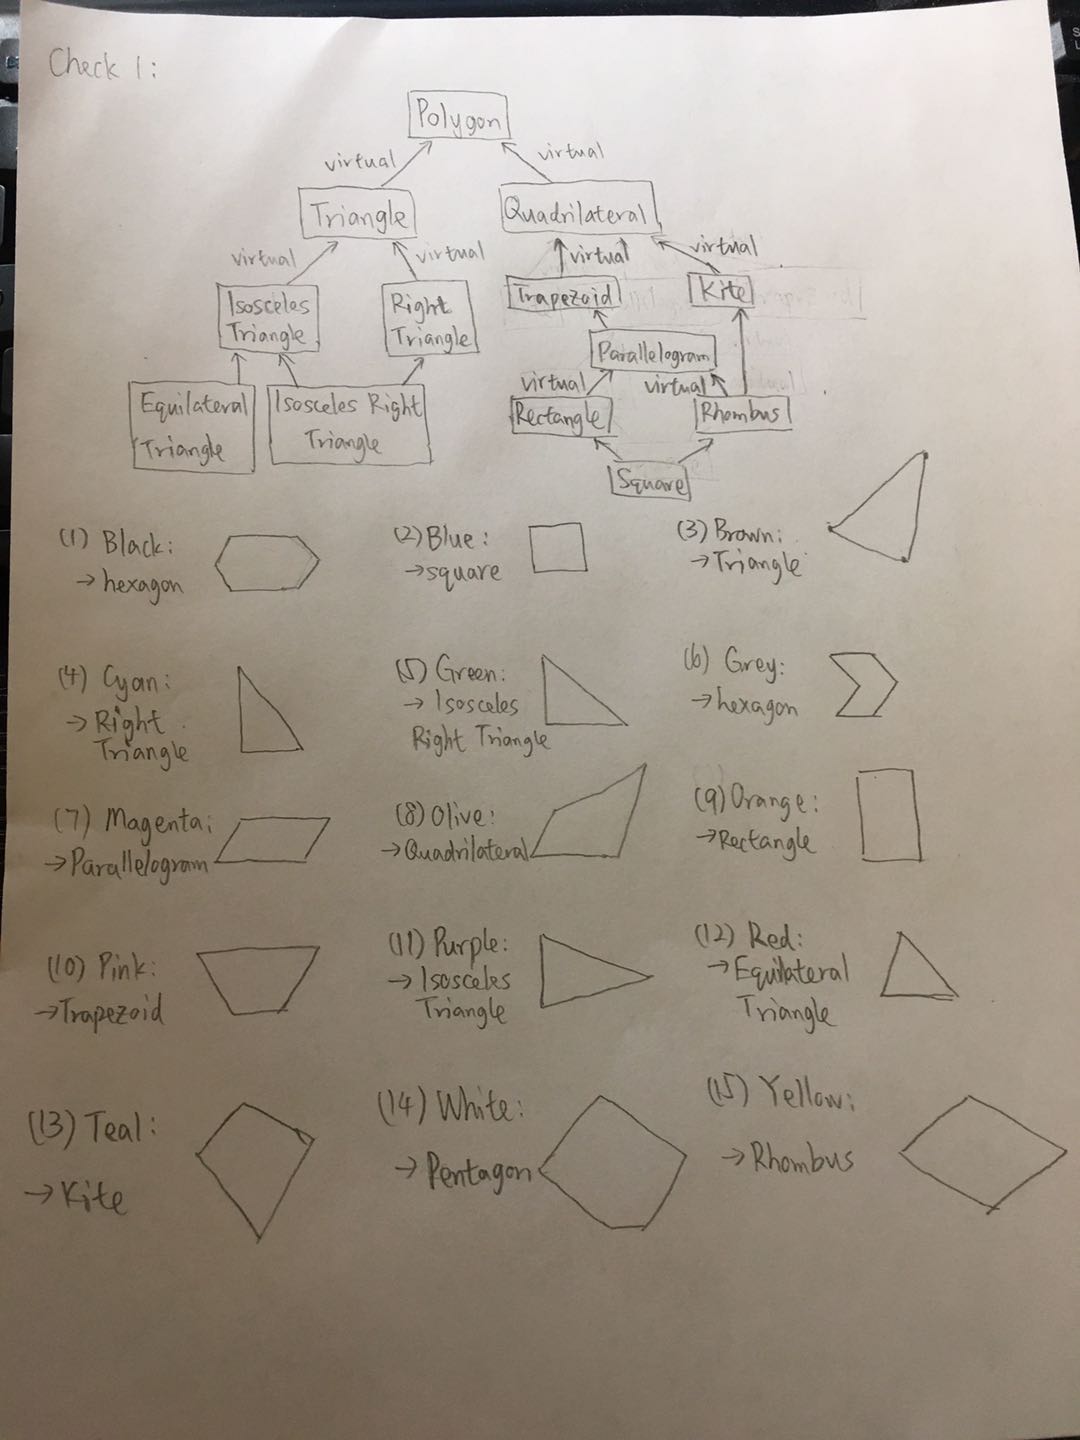 Check 1:
Polygon
virtual virtual
Triangle Quadrilateral
virtual virtual virtual virtual
Isosceles Triangle
Right Triangle
Trapezoid Kite
Parallelogram
virtual virtual
Equilateral Triangle
Isosceles Right Triangle
Rectangle Rhombus
Square
(1) Black:
→ hexagon
(2) Blue:
→ square
(3) Brown:
→ Triangle
(4) Cyan:
→ Right
Triangle
(5) Green:
→ Isosceles
Right Triangle
(6) Grey:
→ hexagon
(7) Magenta:
→ Parallelogram
(8) Olive:
→ Quadrilateral
(9) Orange:
→ Rectangle
(10) Pink:
→ Trapezoid
(11) Purple:
→ Isosceles
Triangle
(12) Red:
→ Equilateral
Triangle
(13) Teal:
→ Kite
(14) White:
→ Pentagon
(15) Yellow:
→ Rhombus